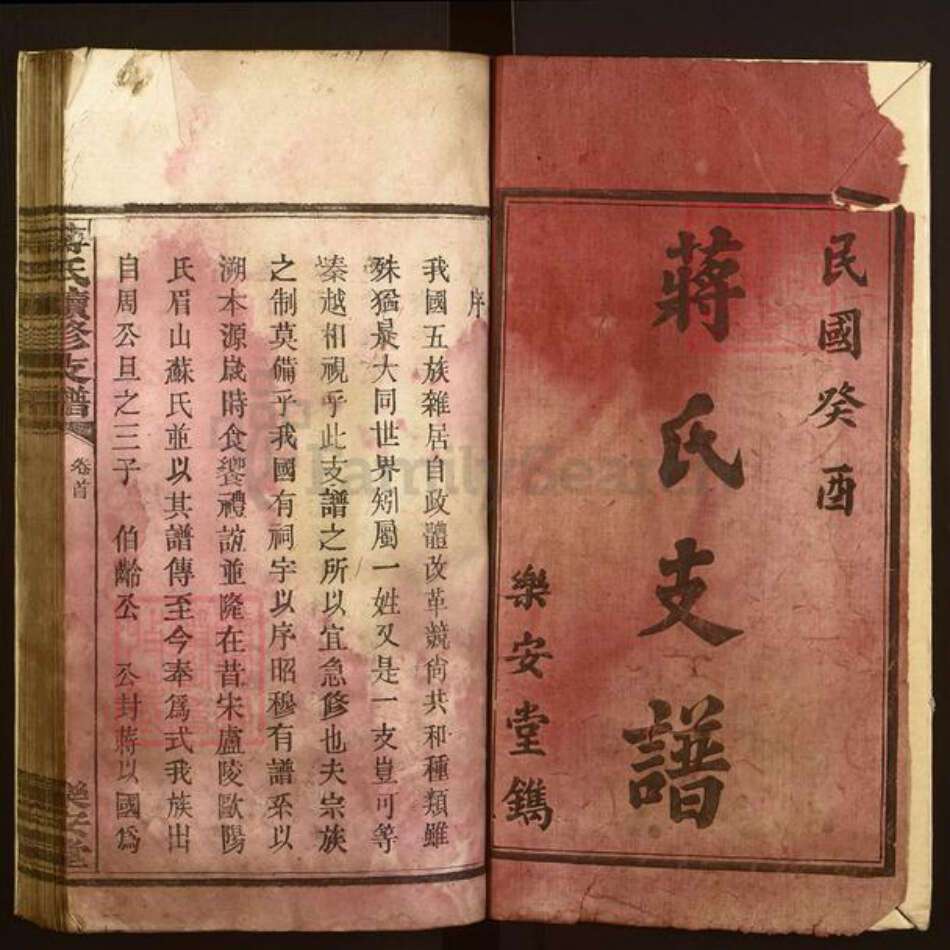 民國癸酉
蔣氏支譜
樂安堂鐫
序
我國五族雜居自政體改革競尙共和種類雖
殊猶是大同世界矧屬一姓又是一支豈可等
秦越相視乎此支譜之所以宜急修也夫宗族
之制莫備乎我國有祠宇以序昭穆有譜系以
溯本源歲時食饗禮誼並隆在昔宋盧陵歐陽
氏眉山蘇氏並以其譜傳至今奉爲式我族出
自周公旦之三子 伯齡公 公封蔣以國爲
蔣氏續修支譜
卷首
樂安堂
FamilySearch